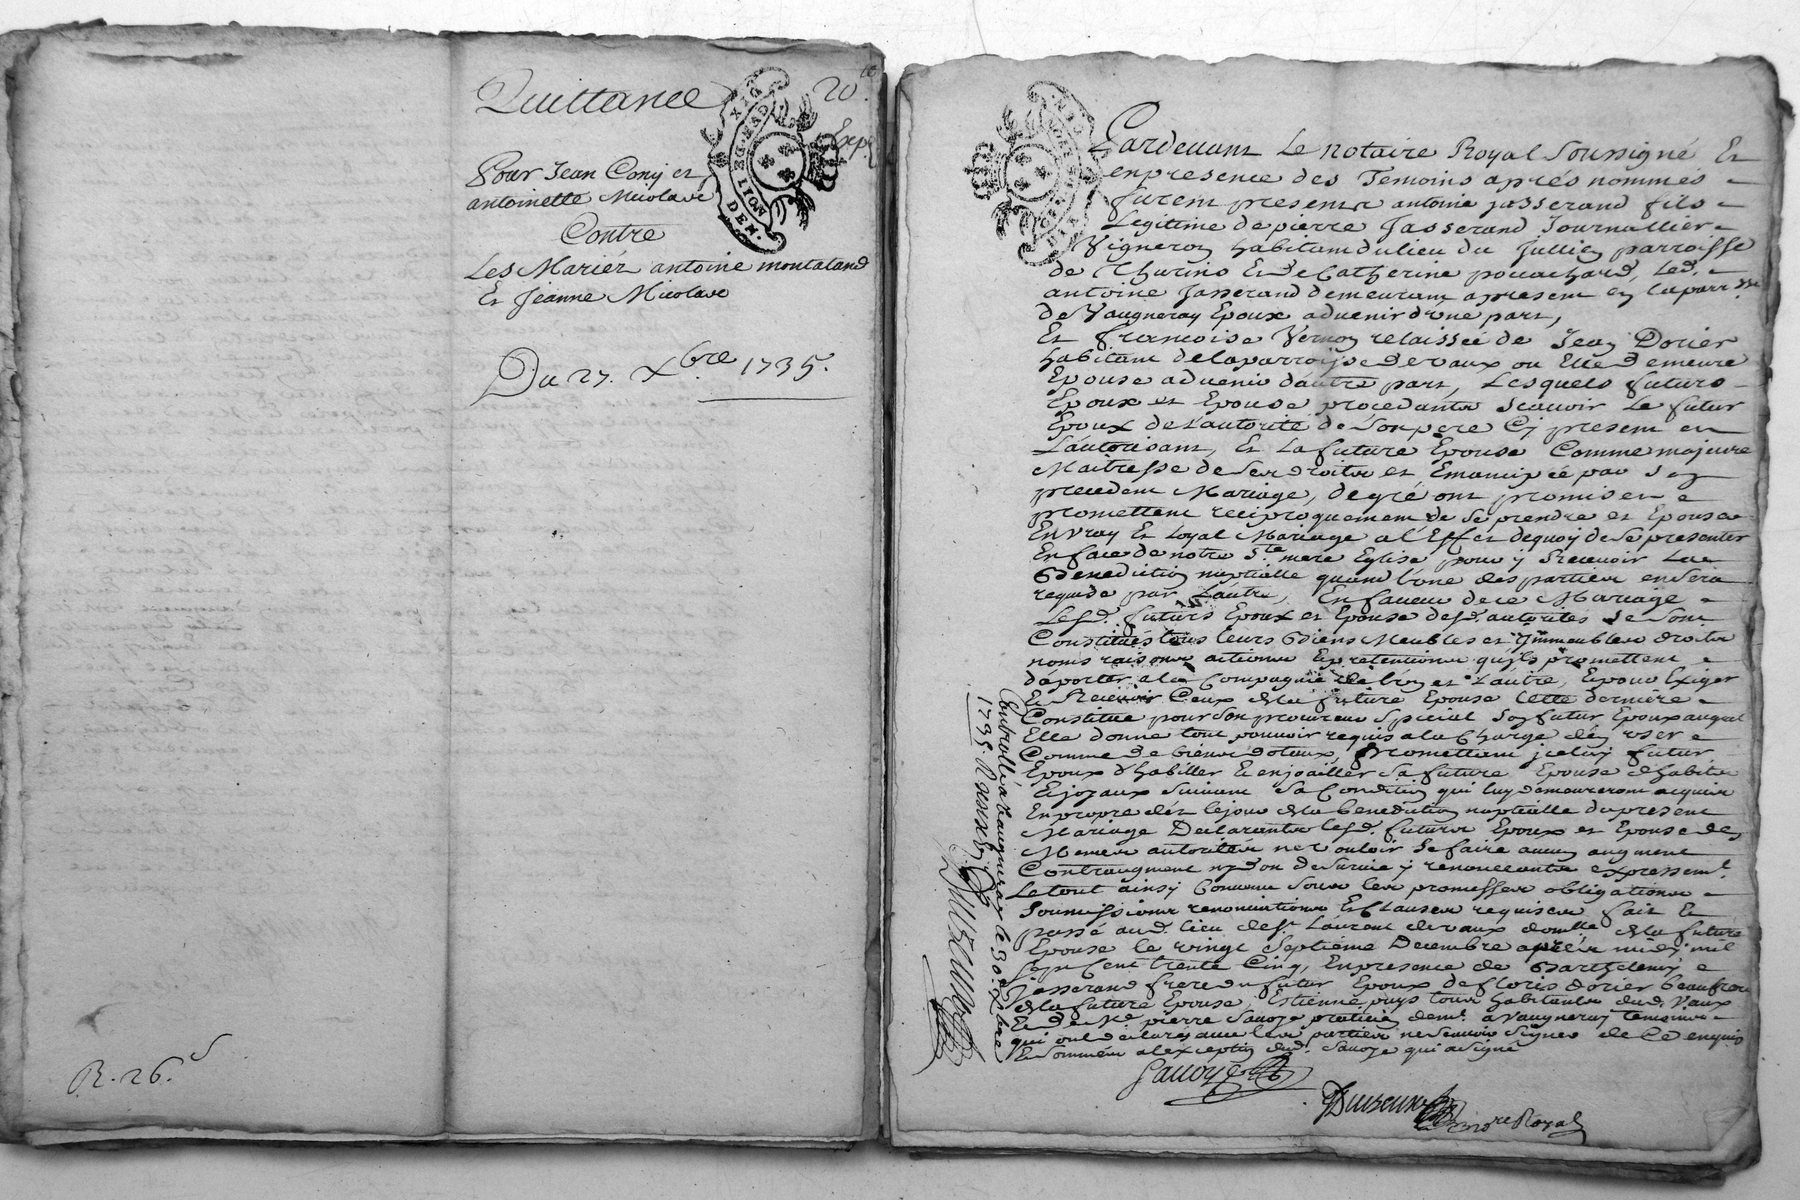 Quittance
20 s
Exp
DIX
GEN. DE LION
DEN.
Pour Jean Cony et
antoinette Nicolas
Contre
Les Mariéz antoine montaland
Et Jeanne Nicolas
Du 27. Xbre 1735.
R. 26 s
Pardevant Le notaire Royal soussigné Et
en presence des Temoins aprés nommes
furent presents antoine jasserand fils
Legitime de pierre Jasserand Journallier
Vigneron habitant du lieu du Jullin parroisse
de Thurins Et de Catherine pouachard, Led.
antoine Jasserand demeurant apresent en la parr.sse
de Vaugneray Epoux advenir d'une part,
Et francoise Vernon relaissée de Jean Dorier
habitant de la parroisse de vaux ou Elle demeure
Epouse advenir d'autre part, Lesquels futurs
Epoux et Epouse procedants scavoir Le futur
Epoux de L'autorité de Son pere Cy present en
L'autorisant, Et La future Epouse Comme majeure
Maitresse de ses droits et Emancipée par son
precedent Mariage, de gré ont promis et
promettent reciproquement de se prendre et Epouser
En vray Et Loyal Mariage a l'Effet dequoy de se presenter
En face de notre Ste mere Eglise pour y Recevoir La
Benediction nuptialle quand l'une des parties en sera
requise par L'autre, En faveur de ce Mariage
Lesd. futurs Epoux et Epouse desd. autorites se sont
Constitués tous leurs Biens Meubles et Immeubles droits
noms raisons actions Et pretentions qu'ils promettent
d'aporter a la Compagnie de l'un et L'autre, Et pour Exiger
Et Recevoir Ceux de la future Epouse Cette derniere
Constitue pour son procureur special son futur Epoux auquel
Elle donne tout pouvoir requis a la Charge d'en user
Comme de biens dotaux, promettant jceluy futur
Epoux d'habiller Et enjoailler sa future Epouse d'habits
Et joyaux suivant sa Condition qui luy demeureront acquis
En propre dés le jour de la benediction nuptialle du present
Mariage Declarants lesd. futurs Epoux et Epouse des
Memes autorites ne vouloir se faire aucun augment
Contraugment ny don de survie y renoncants expressemt.
Le tout ainsy Convenu sous les promesses obligations
soumissions renonciations Et Clauses requises fait Et
passé aud. lieu de St Laurent de vaux domlle de la future
Epouse le vingt septiéme Decembre aprés midy mil
sept Cent trente Cinq, En presence de Barthelemy
jasserand frere du futur Epoux de floris dorier beaufrere
de la future Epouse, Estienne puys tous habitants dud. Vaux
Et de Me pierre Savoye praticien demt. a Vaugneray temoins
qui ont declarés avec les parties ne scavoir signer de Ce enquis
Et sommés a l'exception dud. Savoye qui a signé
Savoye
Duiseux
Nore Royal
Controllé a Vaugneray le 30. Xbre
1735 R